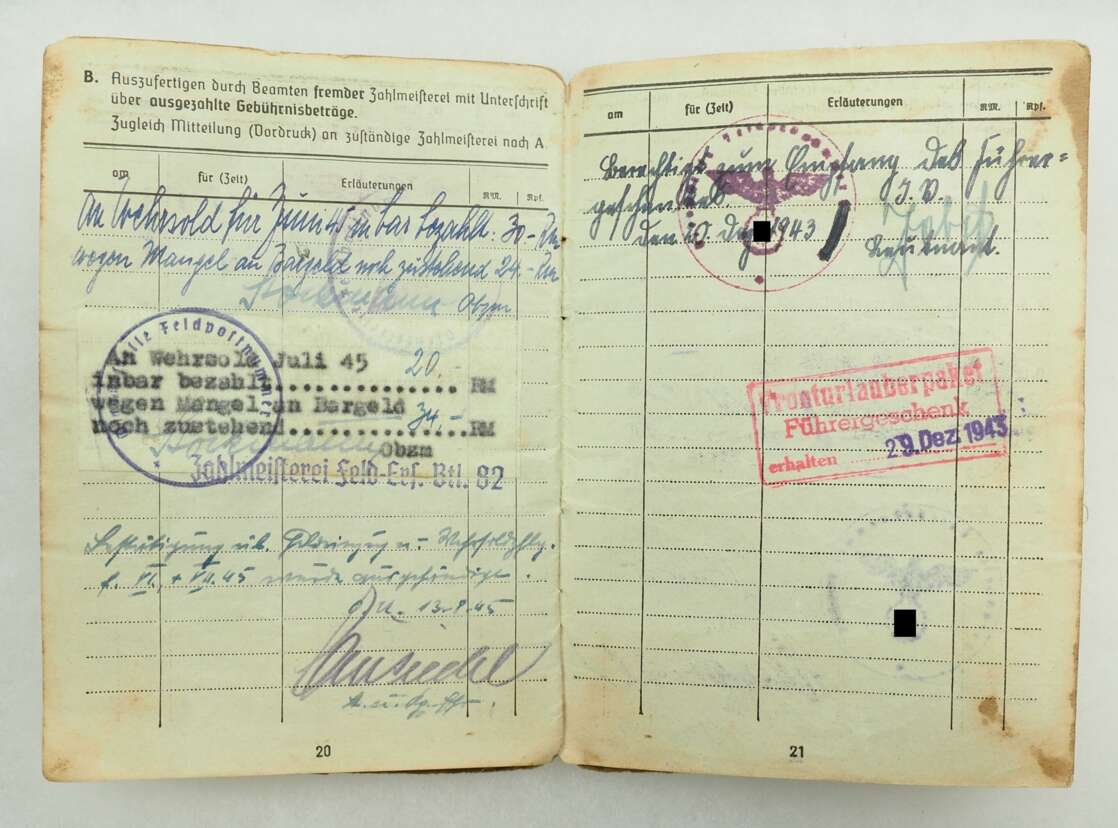 B. Auszufertigen durch Beamten fremder Zahlmeisterei mit Unterschrift
über ausgezahlte Gebührnisbeträge.
Zugleich Mitteilung (Vordruck) an zuständige Zahlmeisterei nach A.
am für (Zeit) Erläuterungen RM. Rpf.
An Wehrsold für Juni 45 in bar bezahlt: 30,- RM
wegen Mangel an Bargeld noch zustehend 24,- RM
Obzm
Feldpostnummer
An Wehrsold Juli 45 20.-
inbar bezahlt.............. RM
wegen Mangel an Bargeld 34,-
noch zustehend..............RM
Obzm
Zahlmeisterei Feld-Ers. Btl. 82
Bestätigung üb. u. Wehrsoldzhlg.
f. VI. + VII. 45 wurde ausgehändigt.
O.U. 13.8.45
20
am für (Zeit) Erläuterungen RM. Rpf.
Berechtigt zum Empfang des Führer=
geschenkes. I.V.
den 20. Dez. 1943
Leutnant.
Fronturlauberpaket
Führergeschenk
erhalten 29. Dez. 1943
21